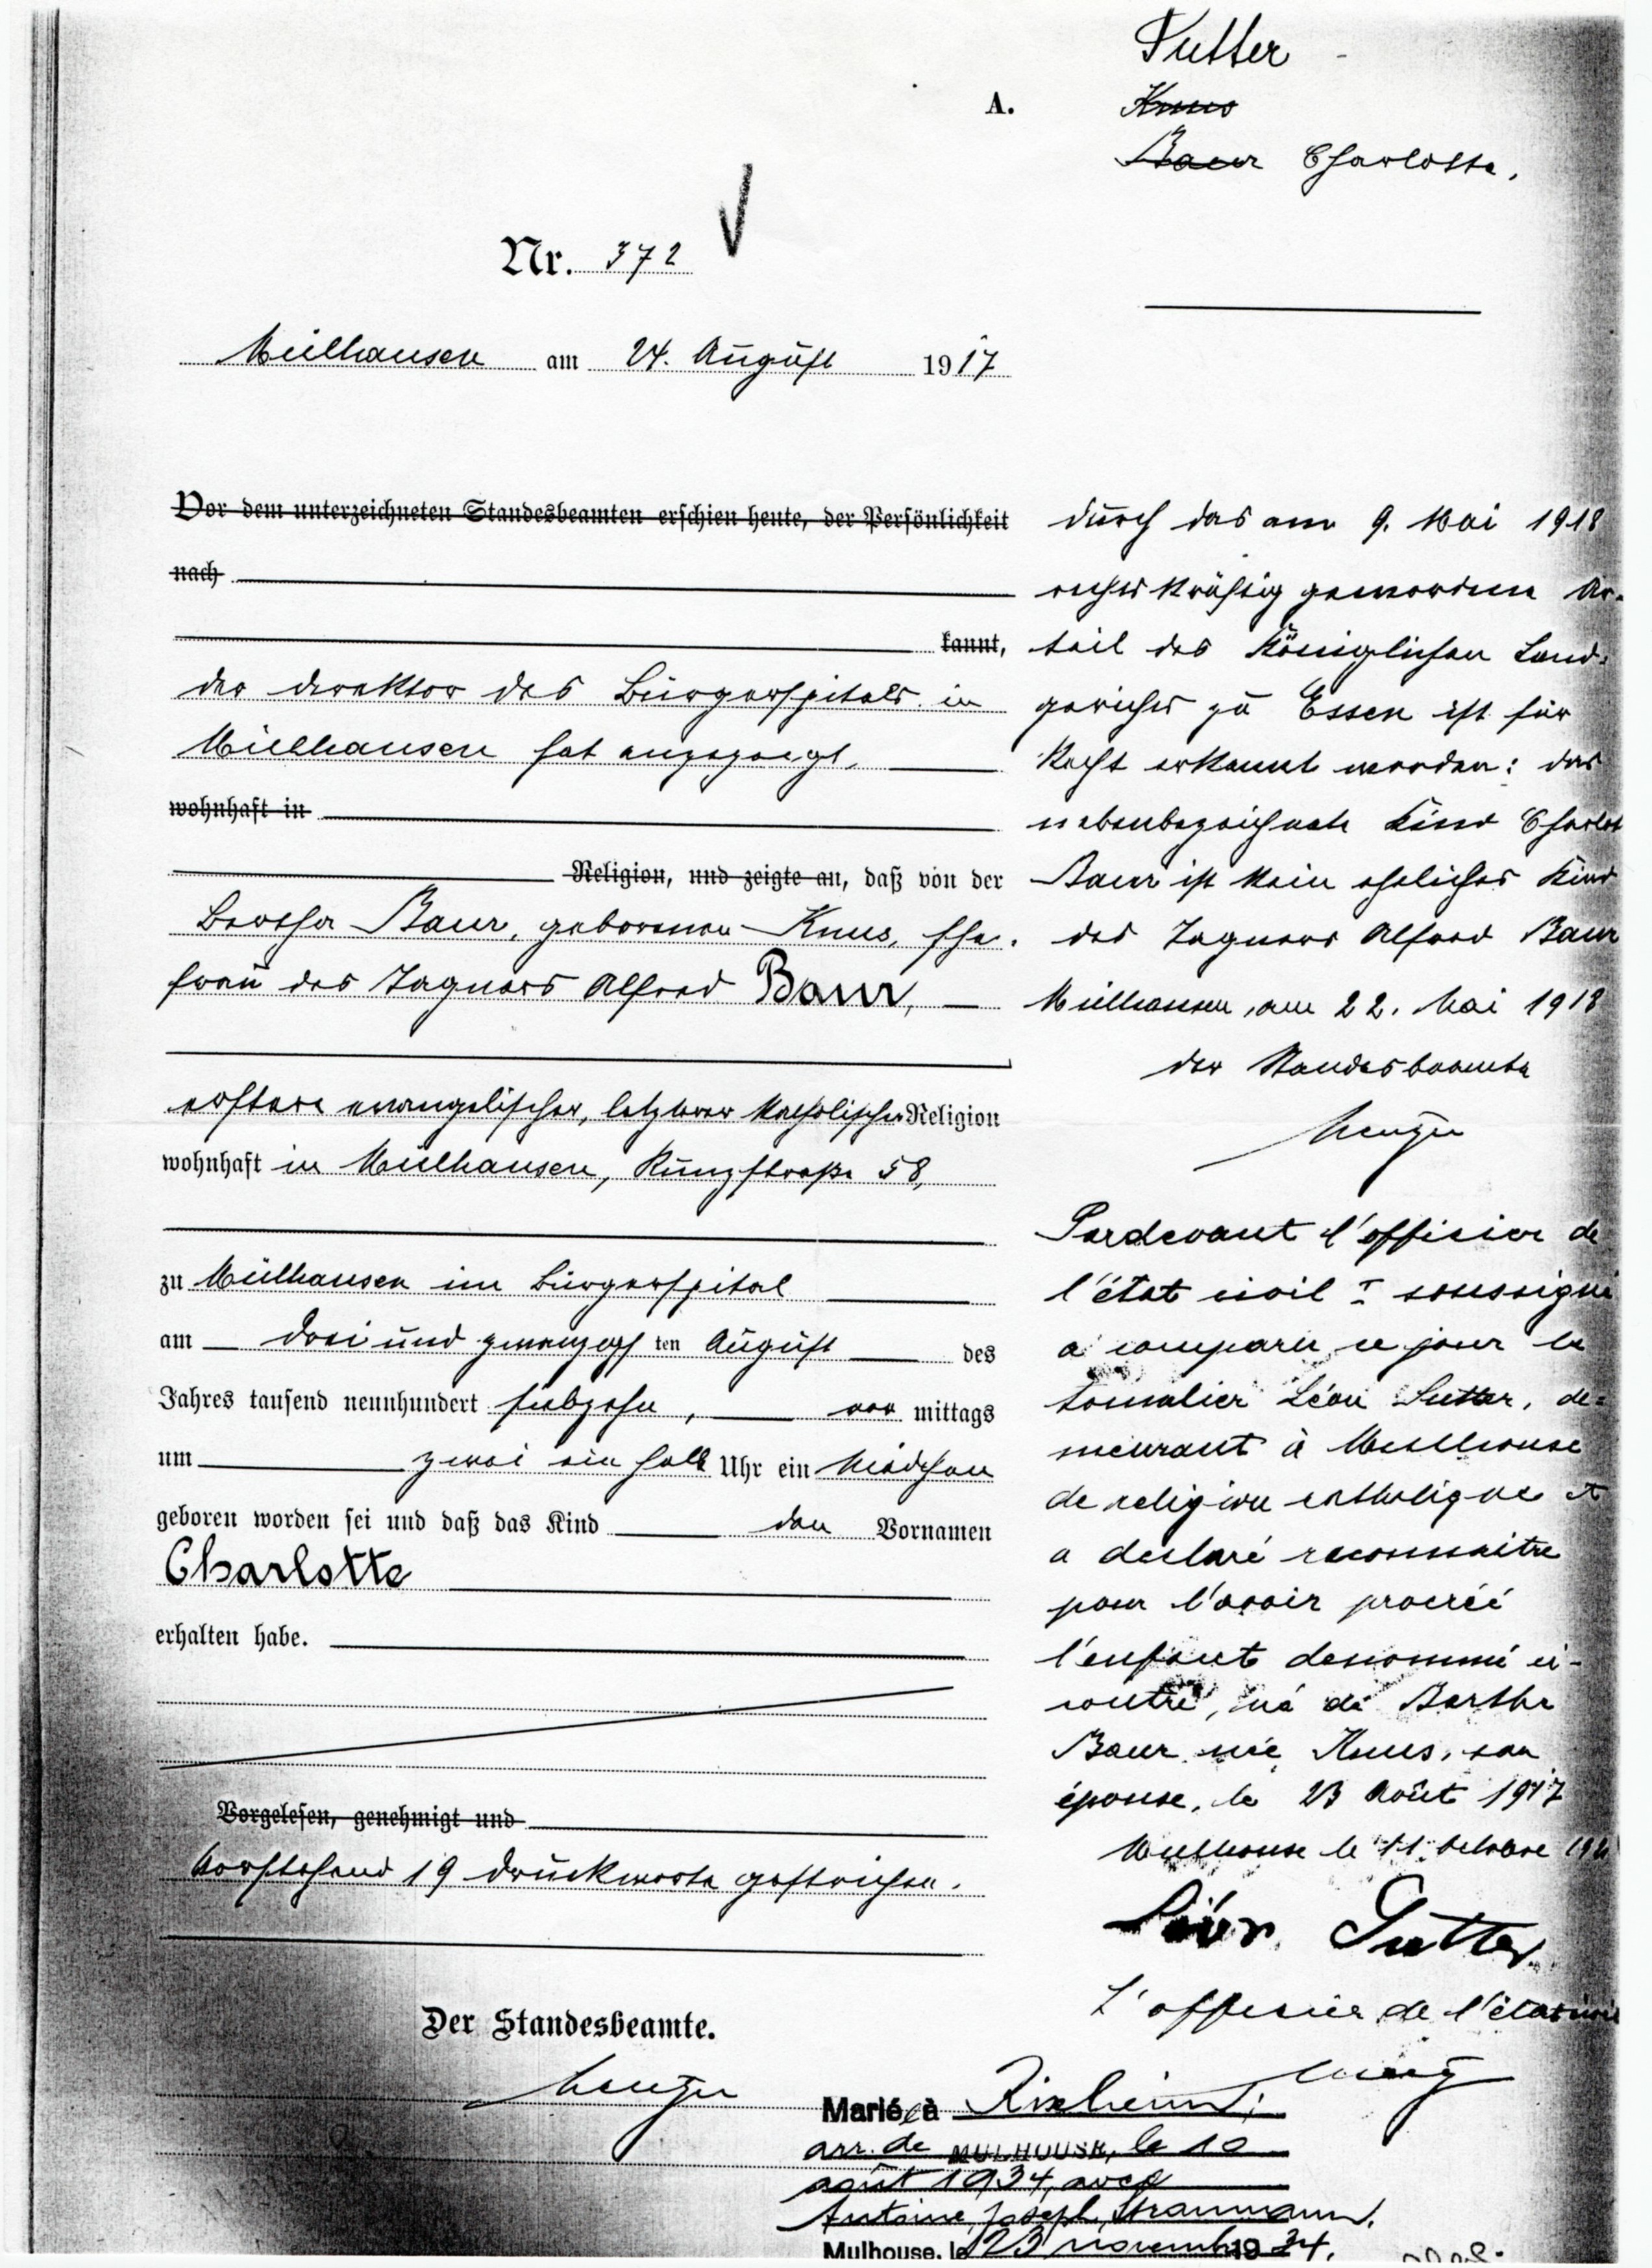 Sutter
A.
Knus
Baur Charlotte.
Nr. 372
Mülhausen am 24. August 1917
Vor dem unterzeichneten Standesbeamten erschien heute, der Persönlichkeit
nach
kannt,
der Direktor des Bürgerspitals in
Mülhausen hat angezeigt,
wohnhaft in
Religion, und zeigte an, daß von der
Bertha Baur, geborenen Knus, Ehe-
frau des Tagners Alfred Baur,
erstere evangelischer, letzterer katholischer Religion
wohnhaft in Mülhausen, Runzstraße 58,
zu Mülhausen im Bürgerspital
am drei und zwanzigs ten August des
Jahres tausend neunhundert siebzehn, vor mittags
um zwei ein halb Uhr ein Mädchen
geboren worden sei und daß das Kind den Vornamen
Charlotte
erhalten habe.
Vorgelesen, genehmigt und
Vorstehend 19 Druckworte gestrichen.
Der Standesbeamte.
durch das am 9. Mai 1918
rechtskräftig gewordene Ur-
teil des Königlichen Land-
gerichts zu Essen ist für
Recht erkannt worden: das
nebenbezeichnete Kind Charlot
Baur ist kein eheliches Kind
des Tagners Alfred Baur
Mülhausen, am 22. Mai 1918
Der Standesbeamte
Pardevant l'officier de
l'état civil soussigné
a comparu ce jour le
tonnelier Léon Sutter, de-
meurant à Mulhouse
de religion catholique et
a declaré reconnaitre
pour l'avoir procréé
l'enfant denommé ci-
contre, né de Berthe
Baur née Knus, son
épouse, le 23 Août 1917
Mulhouse le 11 Octobre
Léon Sutter
L'officier de l'état civil
Marié à Rixheim,
arr. de MULHOUSE, le 10
août 1934, avec
Antoine, Joseph, Straumann.
Mulhouse, le 23 novembre 1934.